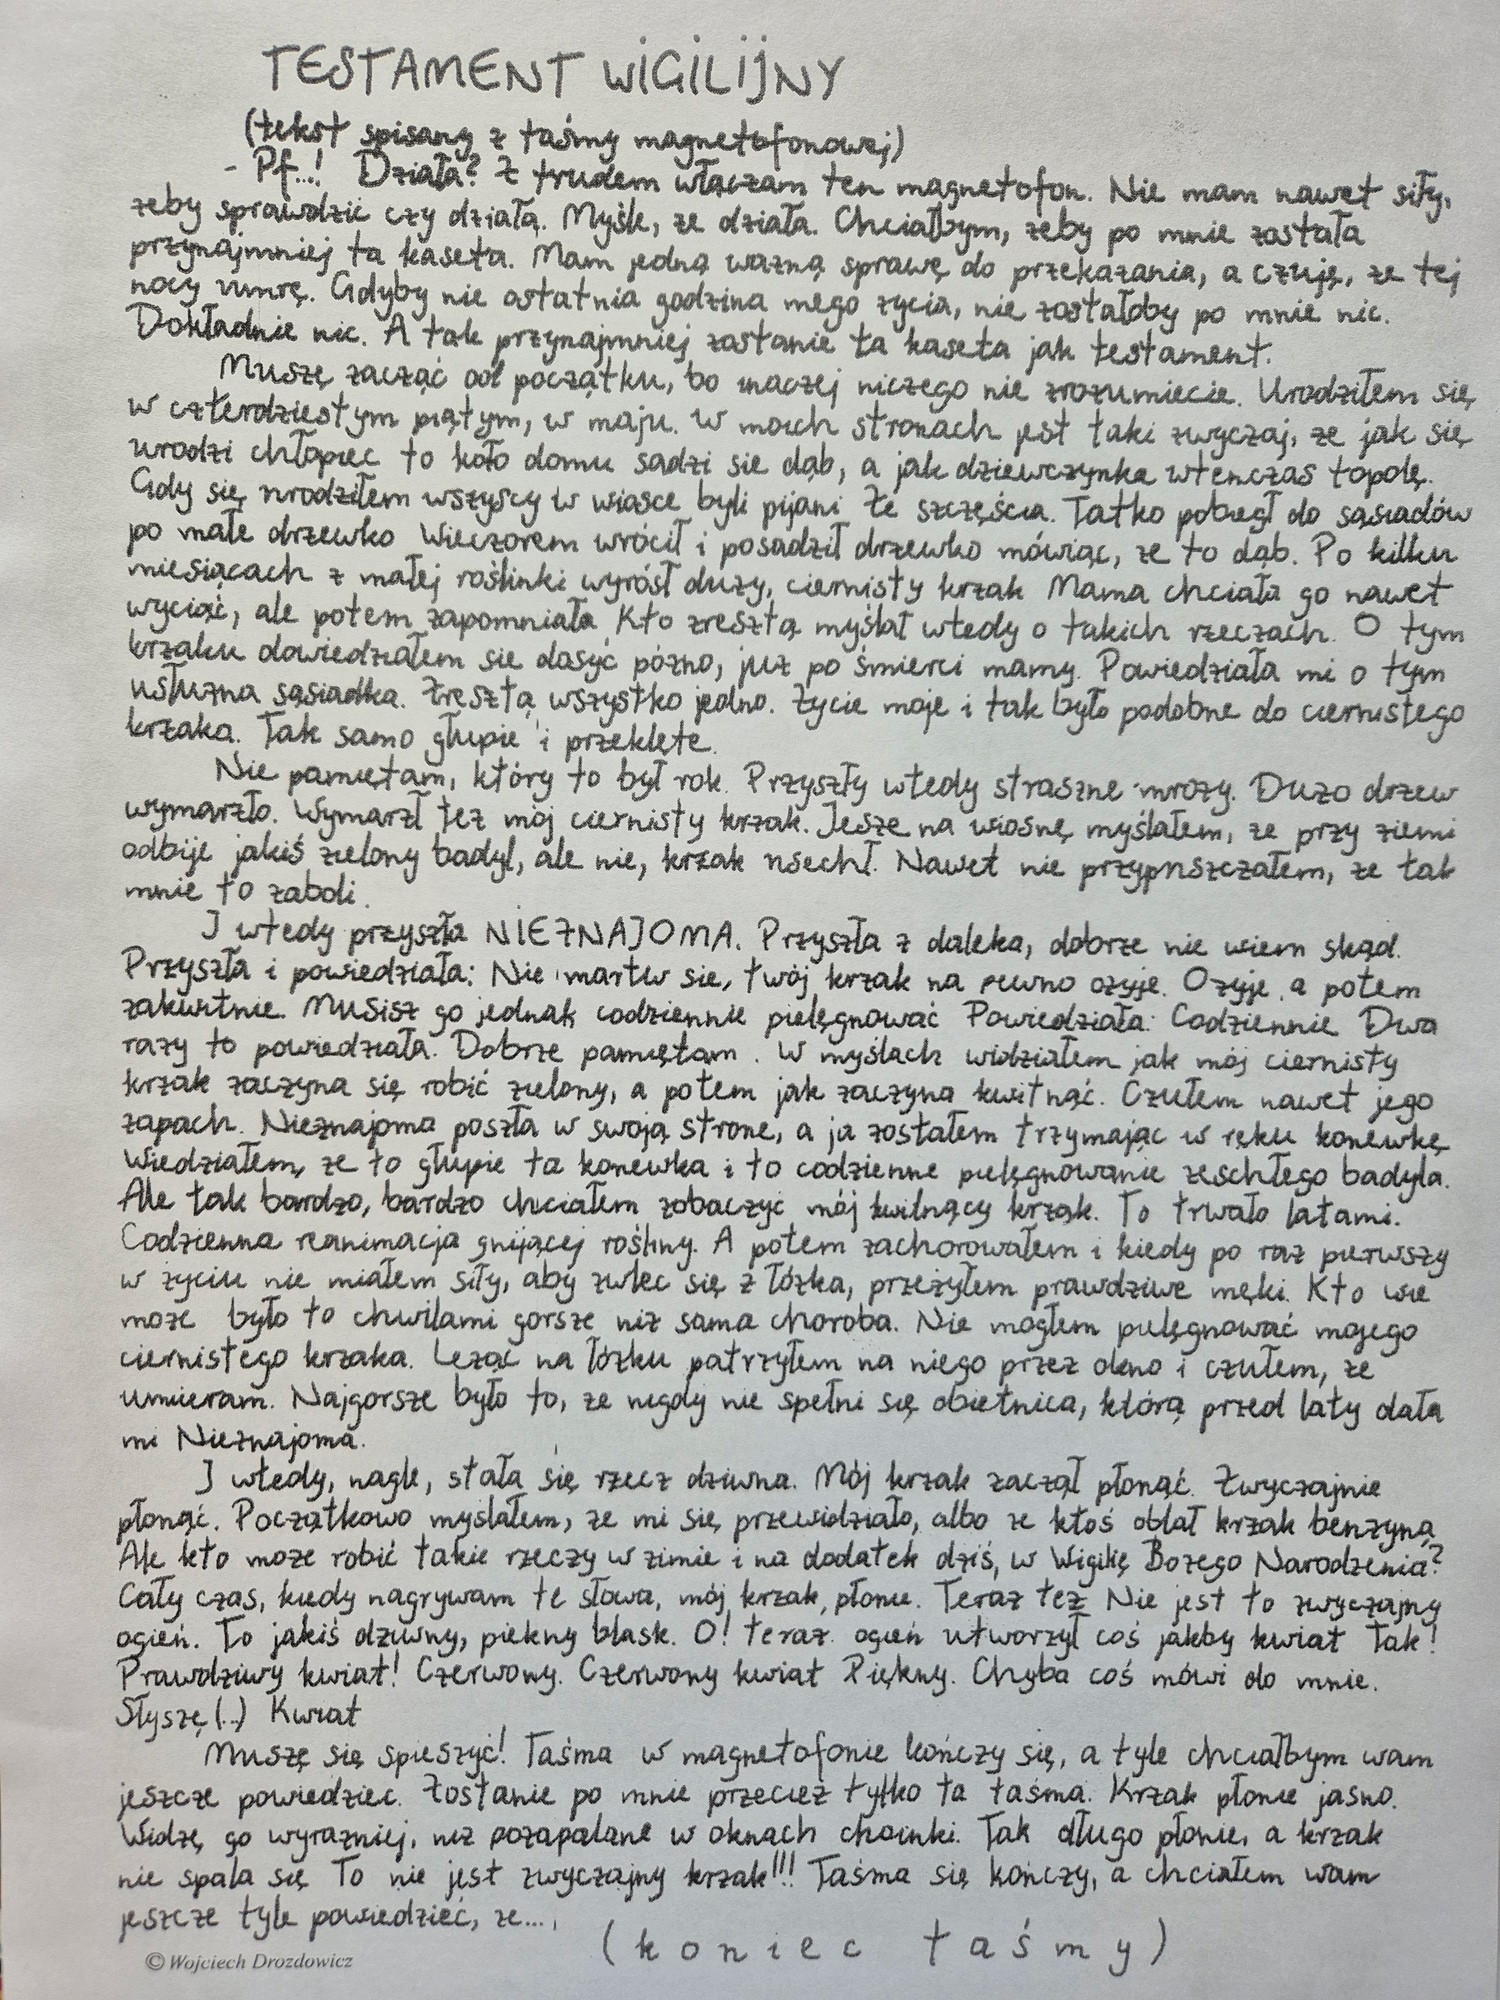 TESTAMENT WIGILIJNY
(tekst spisany z taśmy magnetofonowej)
- Pf...! Działa? Z trudem włączam ten magnetofon. Nie mam nawet siły,
żeby sprawdzić czy działa. Myślę, że działa. Chciałbym, żeby po mnie została
przynajmniej ta kaseta. Mam jedną ważną sprawę do przekazania, a czuję, że tej
nocy umrę. Gdyby nie ostatnia godzina mego życia, nie zostałoby po mnie nic.
Dokładnie nic. A tak przynajmniej zostanie ta kaseta jak testament.
Muszę zacząć od początku, bo inaczej niczego nie zrozumiecie. Urodziłem się
w czterdziestym piątym, w maju. W moich stronach jest taki zwyczaj, że jak się
urodzi chłopiec to koło domu sadzi sie dąb, a jak dziewczynka wtenczas topolę.
Gdy się urodziłem wszyscy w wiosce byli pijani ze szczęścia. Tatko pobiegł do sąsiadów
po małe drzewko Wieczorem wrócił i posadził drzewko mówiąc, że to dąb. Po kilku
miesiącach z małej roślinki wyrósł duży, ciernisty krzak Mama chciała go nawet
wyciąć, ale potem zapomniała. Kto zresztą myślał wtedy o takich rzeczach. O tym
krzaku dowiedziałem sie dosyć późno, już po śmierci mamy. Powiedziała mi o tym
usłużna sąsiadka. Zresztą wszystko jedno. Życie moje i tak było podobne do ciernistego
krzaka. Tak samo głupie i przeklęte.
Nie pamiętam, który to był rok. Przyszły wtedy straszne mrozy. Dużo drzew
wymarzło. Wymarzł też mój ciernisty krzak. Jesze na wiosnę myślałem, że przy ziemi
odbije jakiś zielony badyl, ale nie, krzak usechł. Nawet nie przypuszczałem, że tak
mnie to zaboli.
I wtedy przyszła NIEZNAJOMA. Przyszła z daleka, dobrze nie wiem skąd.
Przyszła i powiedziała: Nie martw sie, twój krzak na pewno ożyje. Ożyje, a potem
zakwitnie. Musisz go jednak codziennie pielęgnować Powiedziała: Codziennie Dwa
razy to powiedziała. Dobrze pamiętam. W myślach widziałem jak mój ciernisty
krzak zaczyna się robić zielony, a potem jak zaczyna kwitnąć. Czułem nawet jego
zapach. Nieznajoma poszła w swoją strone, a ja zostałem trzymając w ręku konewkę
Wiedziałem, że to głupie ta konewka i to codzienne pielęgnowanie zeschłego badyla.
Ale tak bardzo, bardzo chciałem zobaczyć mój kwitnący krzak. To trwało latami.
Codzienna reanimacja gnijącej rośliny. A potem zachorowałem i kiedy po raz pierwszy
w życiu nie miałem siły, aby zwlec się z łóżka, przeżyłem prawdziwe męki. Kto wie
może było to chwilami gorsze niż sama choroba. Nie mogłem pielęgnować mojego
ciernistego krzaka. Leżąc na łóżku patrzyłem na niego przez okno i czułem, że
umieram. Najgorsze było to, że nigdy nie spełni się obietnica, którą przed laty dała
mi Nieznajoma.
I wtedy, nagle, stała się rzecz dziwna. Mój krzak zaczął płonąć. Zwyczajnie
płonąć. Początkowo myślałem, że mi się przewidziało, albo że ktoś oblał krzak benzyną
Ale kto może robić takie rzeczy w zimie i na dodatek dziś, w Wigilię Bożego Narodzenia?
Cały czas, kiedy nagrywam te słowa, mój krzak, płonie. Teraz też. Nie jest to zwyczajny
ogień. To jakiś dziwny, piękny blask. O! teraz ogień utworzył coś jakby kwiat Tak!
Prawdziwy kwiat! Czerwony. Czerwony kwiat Piękny. Chyba coś mówi do mnie.
Słyszę (..) Kwiat
Muszę się spieszyć! Taśma w magnetofonie kończy się, a tyle chciałbym wam
jeszcze powiedzieć. Zostanie po mnie przecież tylko ta taśma. Krzak płonie jasno.
Widzę go wyraźniej, niż pozapalane w oknach choinki. Tak długo płonie, a krzak
nie spala się To nie jest zwyczajny krzak!!! Taśma się kończy, a chciałem wam
jeszcze tyle powiedzieć, że....
(koniec taśmy)
© Wojciech Drozdowicz